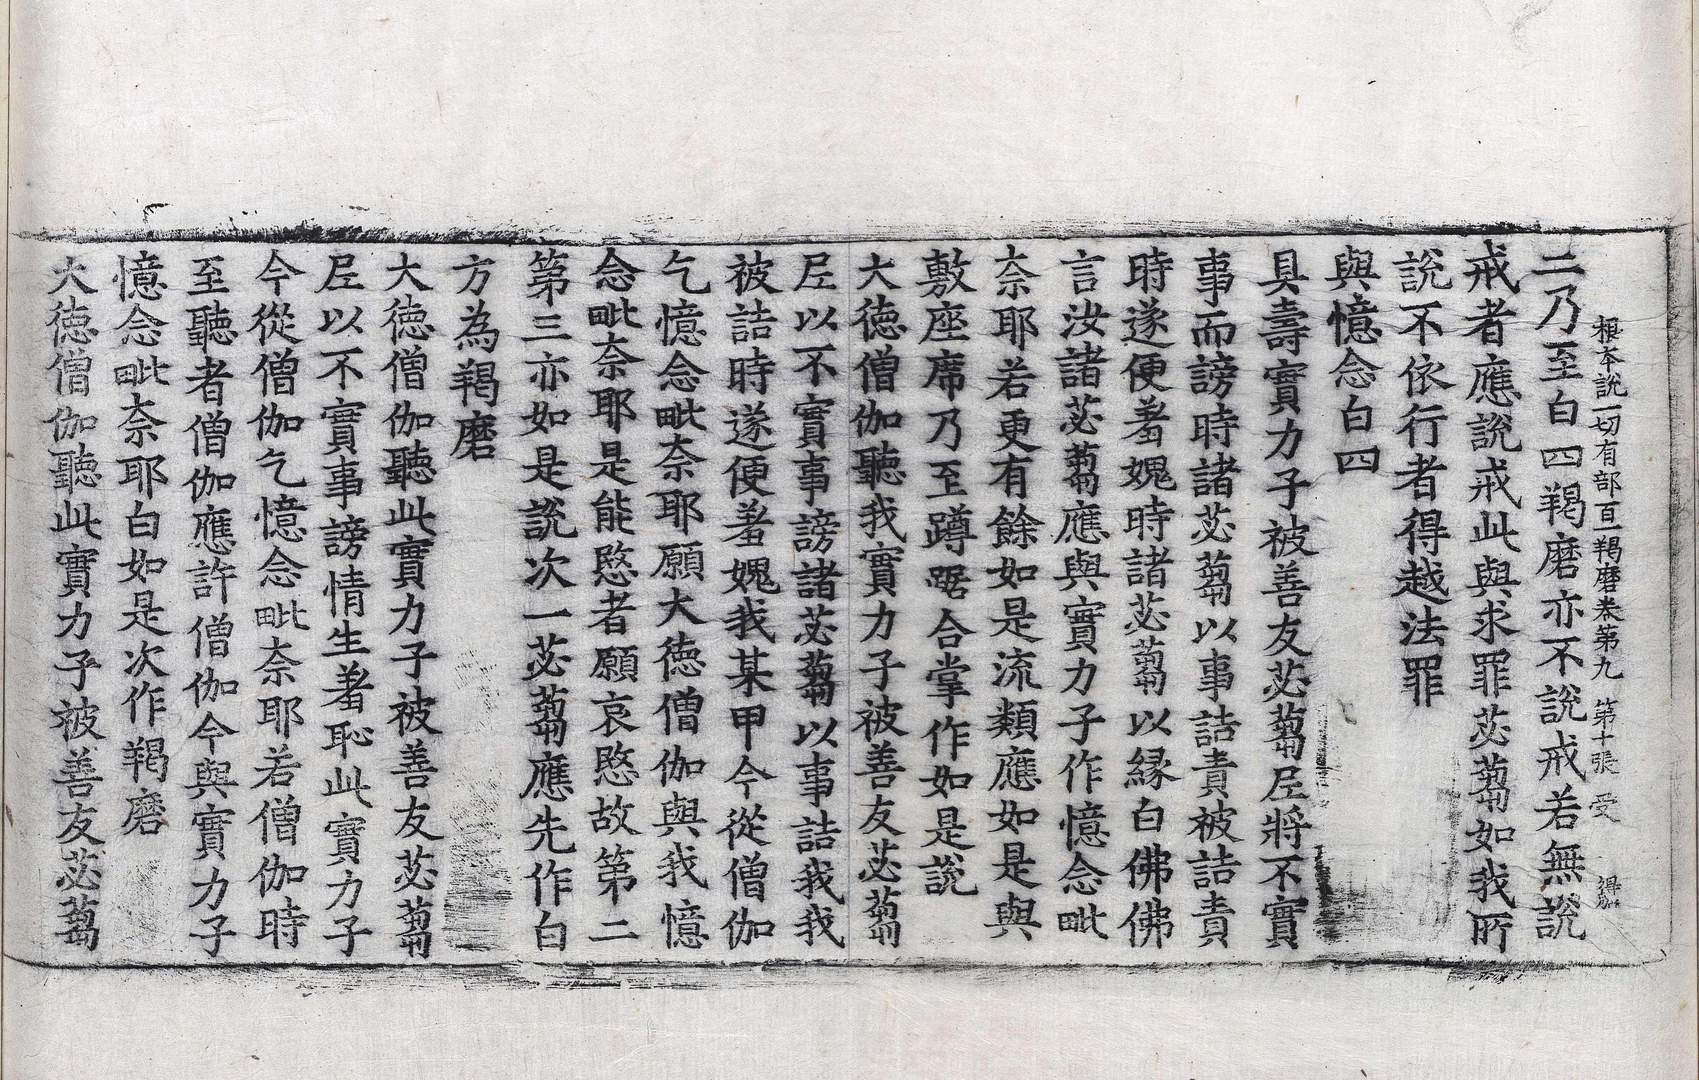 根本說一切有部百一羯磨卷第九 第十張 受
二乃至白四羯磨亦不說戒若無說
戒者應說戒此與求罪苾蒭如我所
說不依行者得越法罪
與憶念白四
具壽實力子被善友苾蒭尼將不實
事而謗時諸苾蒭以事詰責被詰責
時遂便羞媿時諸苾蒭以緣白佛佛
言汝諸苾蒭應與實力子作憶念毗
奈耶若更有餘如是流類應如是與
敷座席乃至蹲踞合掌作如是說
大德僧伽聽我實力子被善友苾蒭
尼以不實事謗諸苾蒭以事詰我我
被詰時遂便羞媿我某甲今從僧伽
乞憶念毗奈耶願大德僧伽與我憶
念毗奈耶是能愍者願哀愍故第二
第三亦如是說次一苾蒭應先作白
方為羯磨
大德僧伽聽此實力子被善友苾蒭
尼以不實事謗情生羞恥此實力子
今從僧伽乞憶念毗奈耶若僧伽時
至聽者僧伽應許僧伽今與實力子
憶念毗奈耶白如是次作羯磨
大德僧伽聽此實力子被善友苾蒭